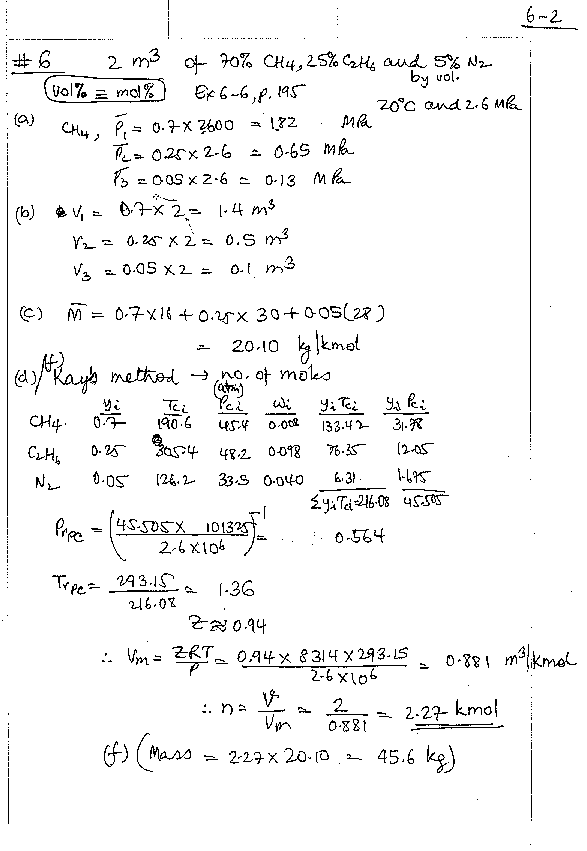 6-2
#6 2 m³ of 70% CH₄, 25% C₂H₆ and 5% N₂
by vol.
vol% ≡ mol% Ex 6-6, p. 195
20°C and 2.6 MPa
(a) CH₄, P̄₁ = 0.7 × 2600 = 1.82 MPa
P̄₂ = 0.25 × 2.6 = 0.65 MPa
P̄₃ = 0.05 × 2.6 = 0.13 MPa
(b) V₁ = 0.7 × 2 = 1.4 m³
V₂ = 0.25 × 2 = 0.5 m³
V₃ = 0.05 × 2 = 0.1 m³
(c) M̄ = 0.7 × 16 + 0.25 × 30 + 0.05(28)
= 20.10 kg/kmol
(d)/(f) Kay's method → no. of moles
yi Tci Pci (atm) ωi yi Tci yi Pci
CH₄ 0.7 190.6 45.4 0.008 133.42 31.78
C₂H₆ 0.25 305.4 48.2 0.098 76.35 12.05
N₂ 0.05 126.2 33.5 0.040 6.31 1.675
Σyi Tci = 216.08 45.505
Prpc = (45.505 × 101325 / 2.6 × 10⁶)⁻¹ = 0.564
Trpc = 293.15 / 216.08 = 1.36
Z ≈ 0.94
∴ Vm = ZRT / P = 0.94 × 8314 × 293.15 / 2.6 × 10⁶ = 0.881 m³/kmol
∴ n = V / Vm = 2 / 0.881 = 2.27 kmol
(f) (Mass = 2.27 × 20.10 = 45.6 kg)